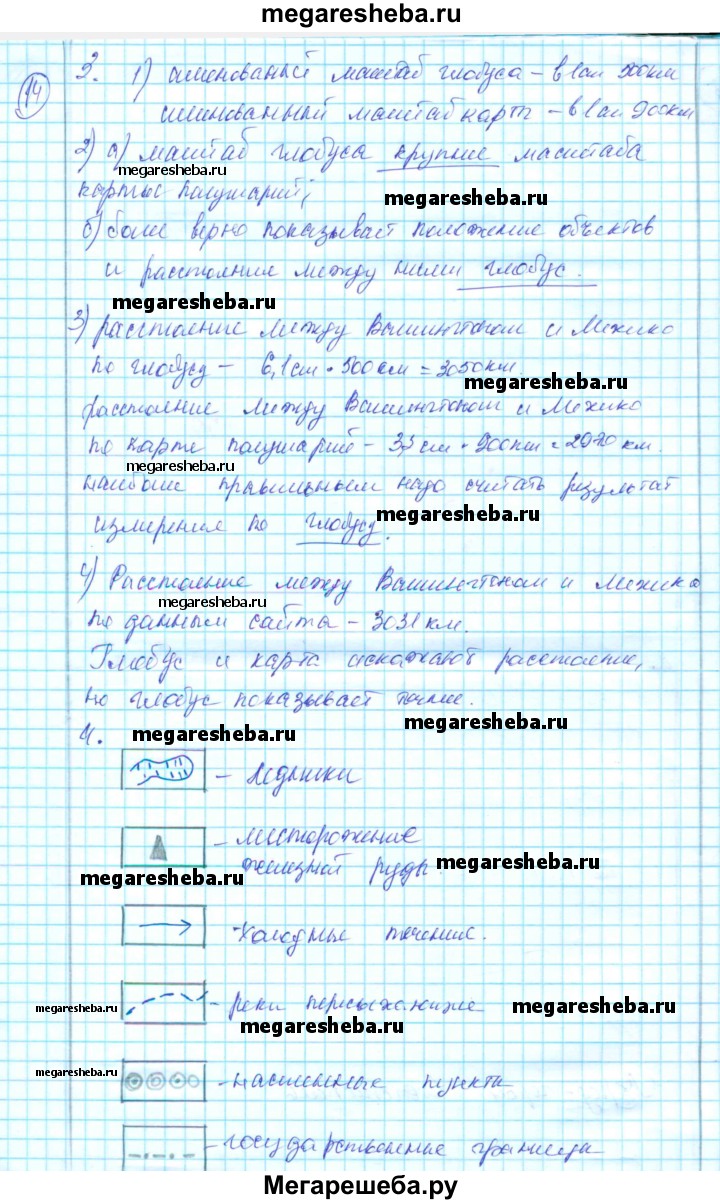 megaresheba.ru
14
3. 1) именованый масштаб глобуса – в 1 см 500 км
именованный масштаб карт – в 1 см 900 км
2) а) масштаб глобуса крупнее масштаба
карты полушарий;
megaresheba.ru
б) более верно показывает положение объектов
и расстояние между ними глобус.
megaresheba.ru
3) расстояние между Вашингтоном и Мехико
по глобусу – 6,1 см · 500 км = 3050 км.
megaresheba.ru
расстояние между Вашингтоном и Мехико
по карте полушарий – 3,3 см · 900 км = 2970 км.
megaresheba.ru
наиболее правильным надо считать результат
измерение по глобусу.
megaresheba.ru
4) Расстояние между Вашингтоном и Мехико
megaresheba.ru
по данным сайта – 3031 км.
Глобус и карта искажают расстояние,
но глобус показывает точнее.
4.
megaresheba.ru
megaresheba.ru
– Ледники
– месторожение
железной руды.
megaresheba.ru
megaresheba.ru
– Холодные течение.
– реки пересыхающие
megaresheba.ru
megaresheba.ru
megaresheba.ru
megaresheba.ru
– населенные пункты
– государственные границы
Мегарешеба.ру